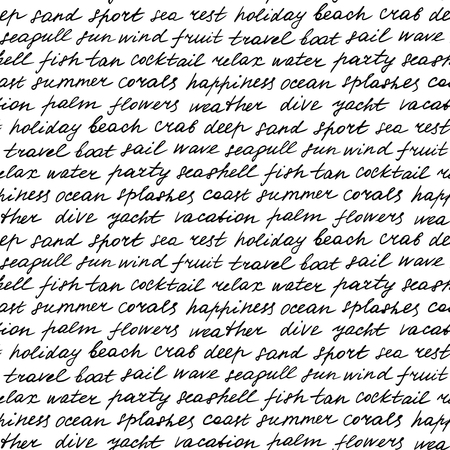 ep sand sport sea rest holiday beach crab de
seagull sun wind fruit travel boat sail wave
hell fish tan cocktail relax water party seash
ast summer corals happiness ocean splashes co
ion palm flowers weather dive yacht vacat
holiday beach crab deep sand sport sea rest
travel boat sail wave seagull sun wind fruit
elax water party seashell fish tan cocktail r
iness ocean splashes coast summer corals happ
ther dive yacht vacation palm flowers wea
ep sand sport sea rest holiday beach crab de
seagull sun wind fruit travel boat sail wave
hell fish tan cocktail relax water party seash
ast summer corals happiness ocean splashes co
ion palm flowers weather dive yacht vacat
holiday beach crab deep sand sport sea rest
travel boat sail wave seagull sun wind fruit
elax water party seashell fish tan cocktail r
iness ocean splashes coast summer corals happ
ther dive yacht vacation palm flowers wea